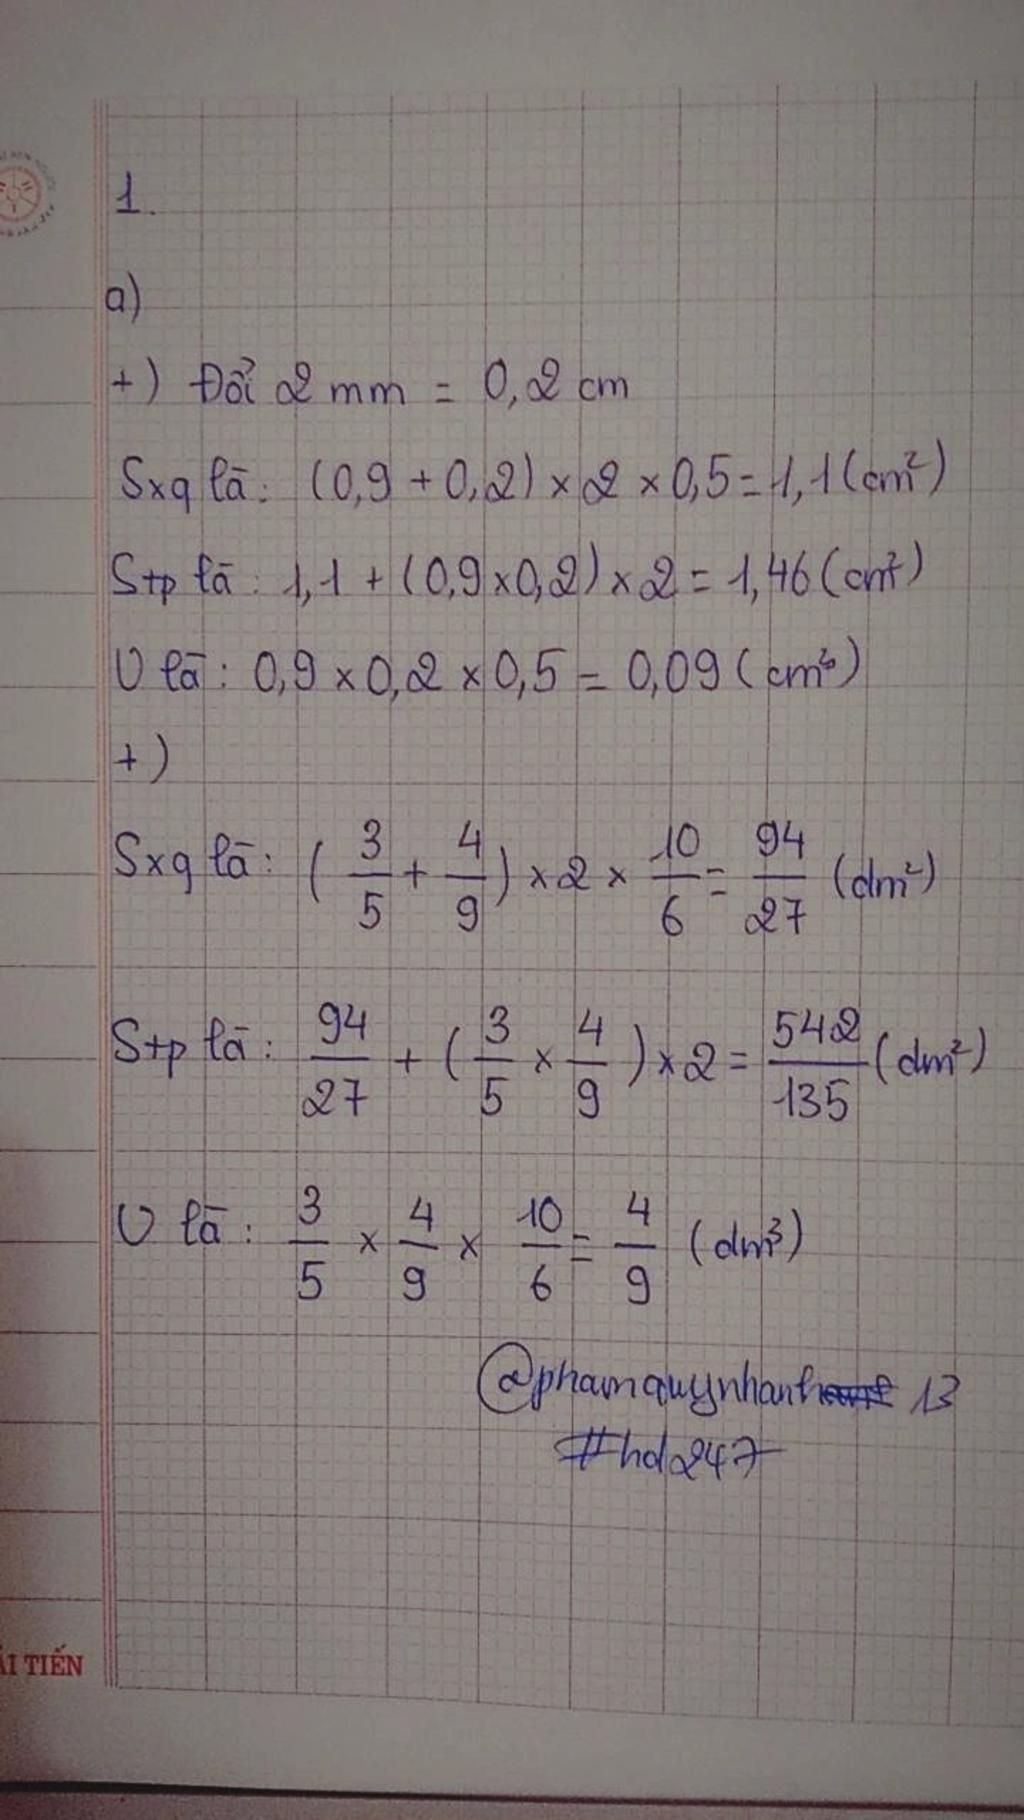 1.
a)
+) Đổi 2 mm = 0,2 cm
Sxq là: (0,9 + 0,2) × 2 × 0,5 = 1,1 (cm²)
Stp là: 1,1 + (0,9 × 0,2) × 2 = 1,46 (cm²)
V là: 0,9 × 0,2 × 0,5 = 0,09 (cm³)
+)
Sxq là: (3/5 + 4/9) × 2 × 10/6 = 94/27 (dm²)
Stp là: 94/27 + (3/5 × 4/9) × 2 = 542/135 (dm²)
V là: 3/5 × 4/9 × 10/6 = 4/9 (dm³)
@phamquynhanh 13
#hd247
ẢI TIẾN